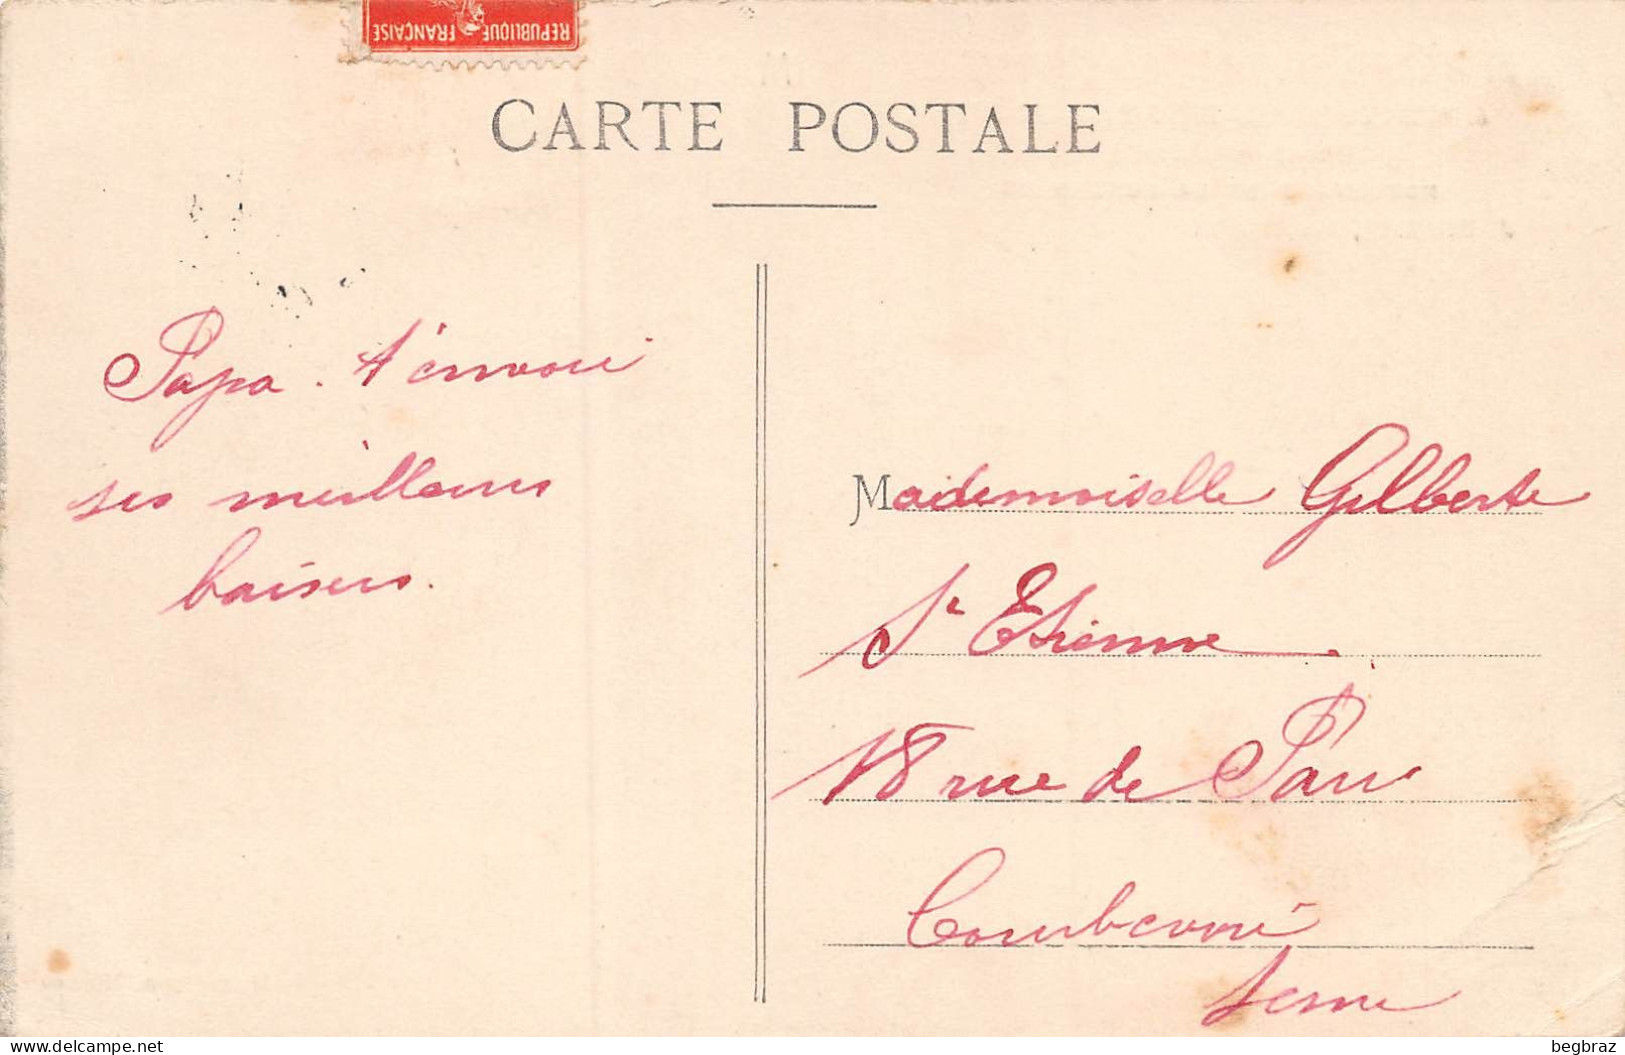 REPUBLIQUE FRANÇAISE
CARTE POSTALE
Papa t'envoie
ses meilleurs
baisers.
Mademoiselle Gilberte
St Etienne
18 rue de Paris
Courbevoie
Seine
delcampe.net
begbraz